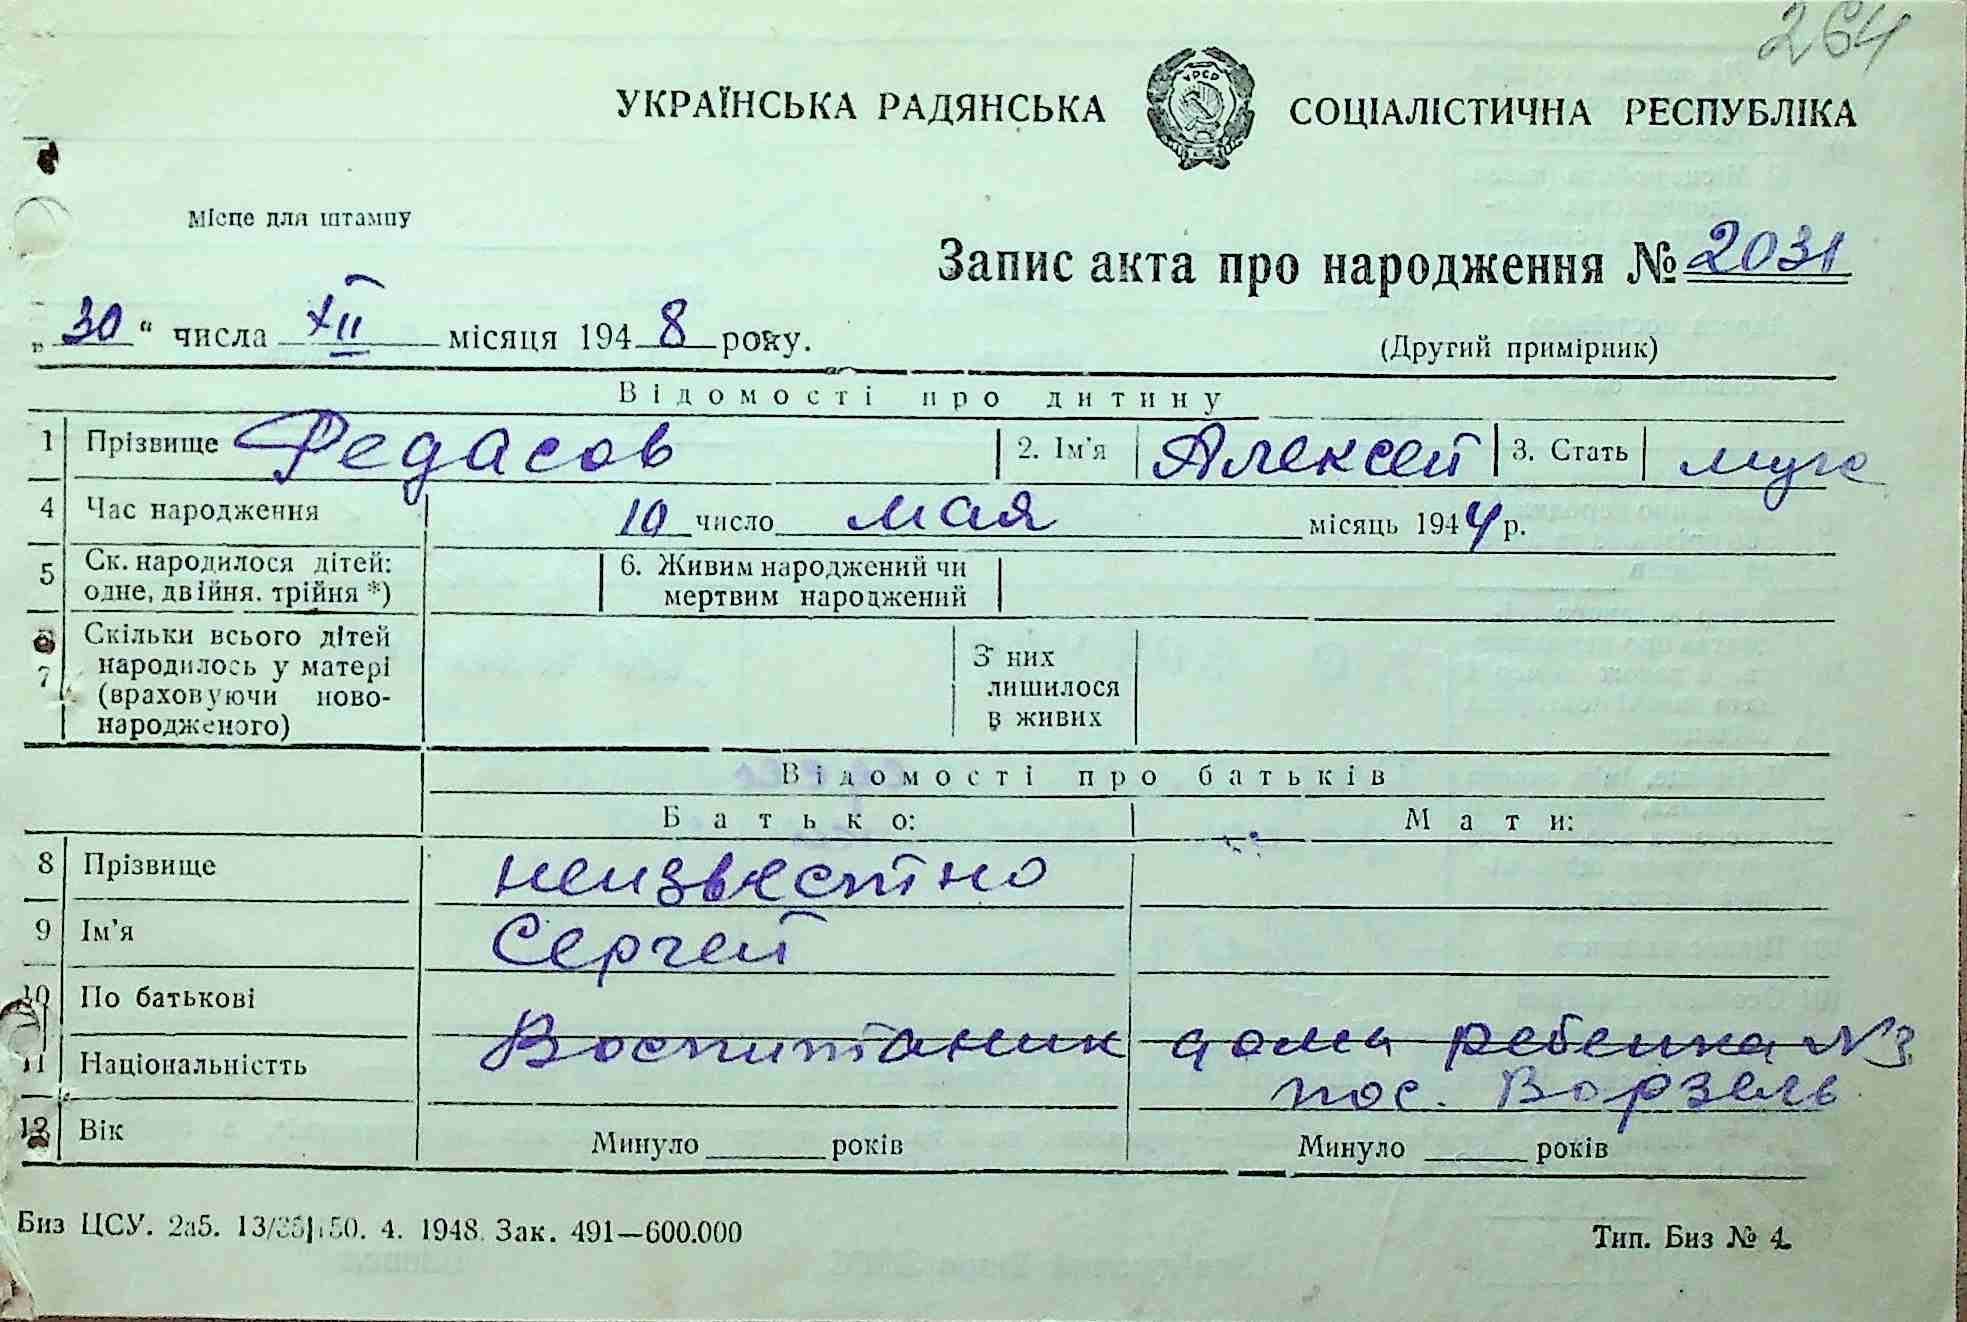 264
УКРАЇНСЬКА РАДЯНСЬКА СОЦІАЛІСТИЧНА РЕСПУБЛІКА
УРСР
Місце для штампу
Запис акта про народження № 2031
„ 30 “ числа XII місяця 1948 року.
(Другий примірник)
Відомості про дитину
1 Прізвище Федасов 2. Ім'я Алексей 3. Стать муж
4 Час народження 10 число мая місяць 1944 р.
5 Ск. народилося дітей: одне, двійня. трійня *) 6. Живим народжений чи мертвим народжений
7 Скільки всього дітей народилось у матері (враховуючи ново-народженого) З них лишилося в живих
Відомості про батьків
Батько: Мати:
8 Прізвище неизвестно
9 Ім'я Сергей
10 По батькові
11 Національністть Воспитаник дома ребенка №3
пос. Ворзель
12 Вік Минуло ______ років Минуло ______ років
Биз ЦСУ. 2а5. 50. 4. 1948. Зак. 491—600.000 Тип. Биз № 4.